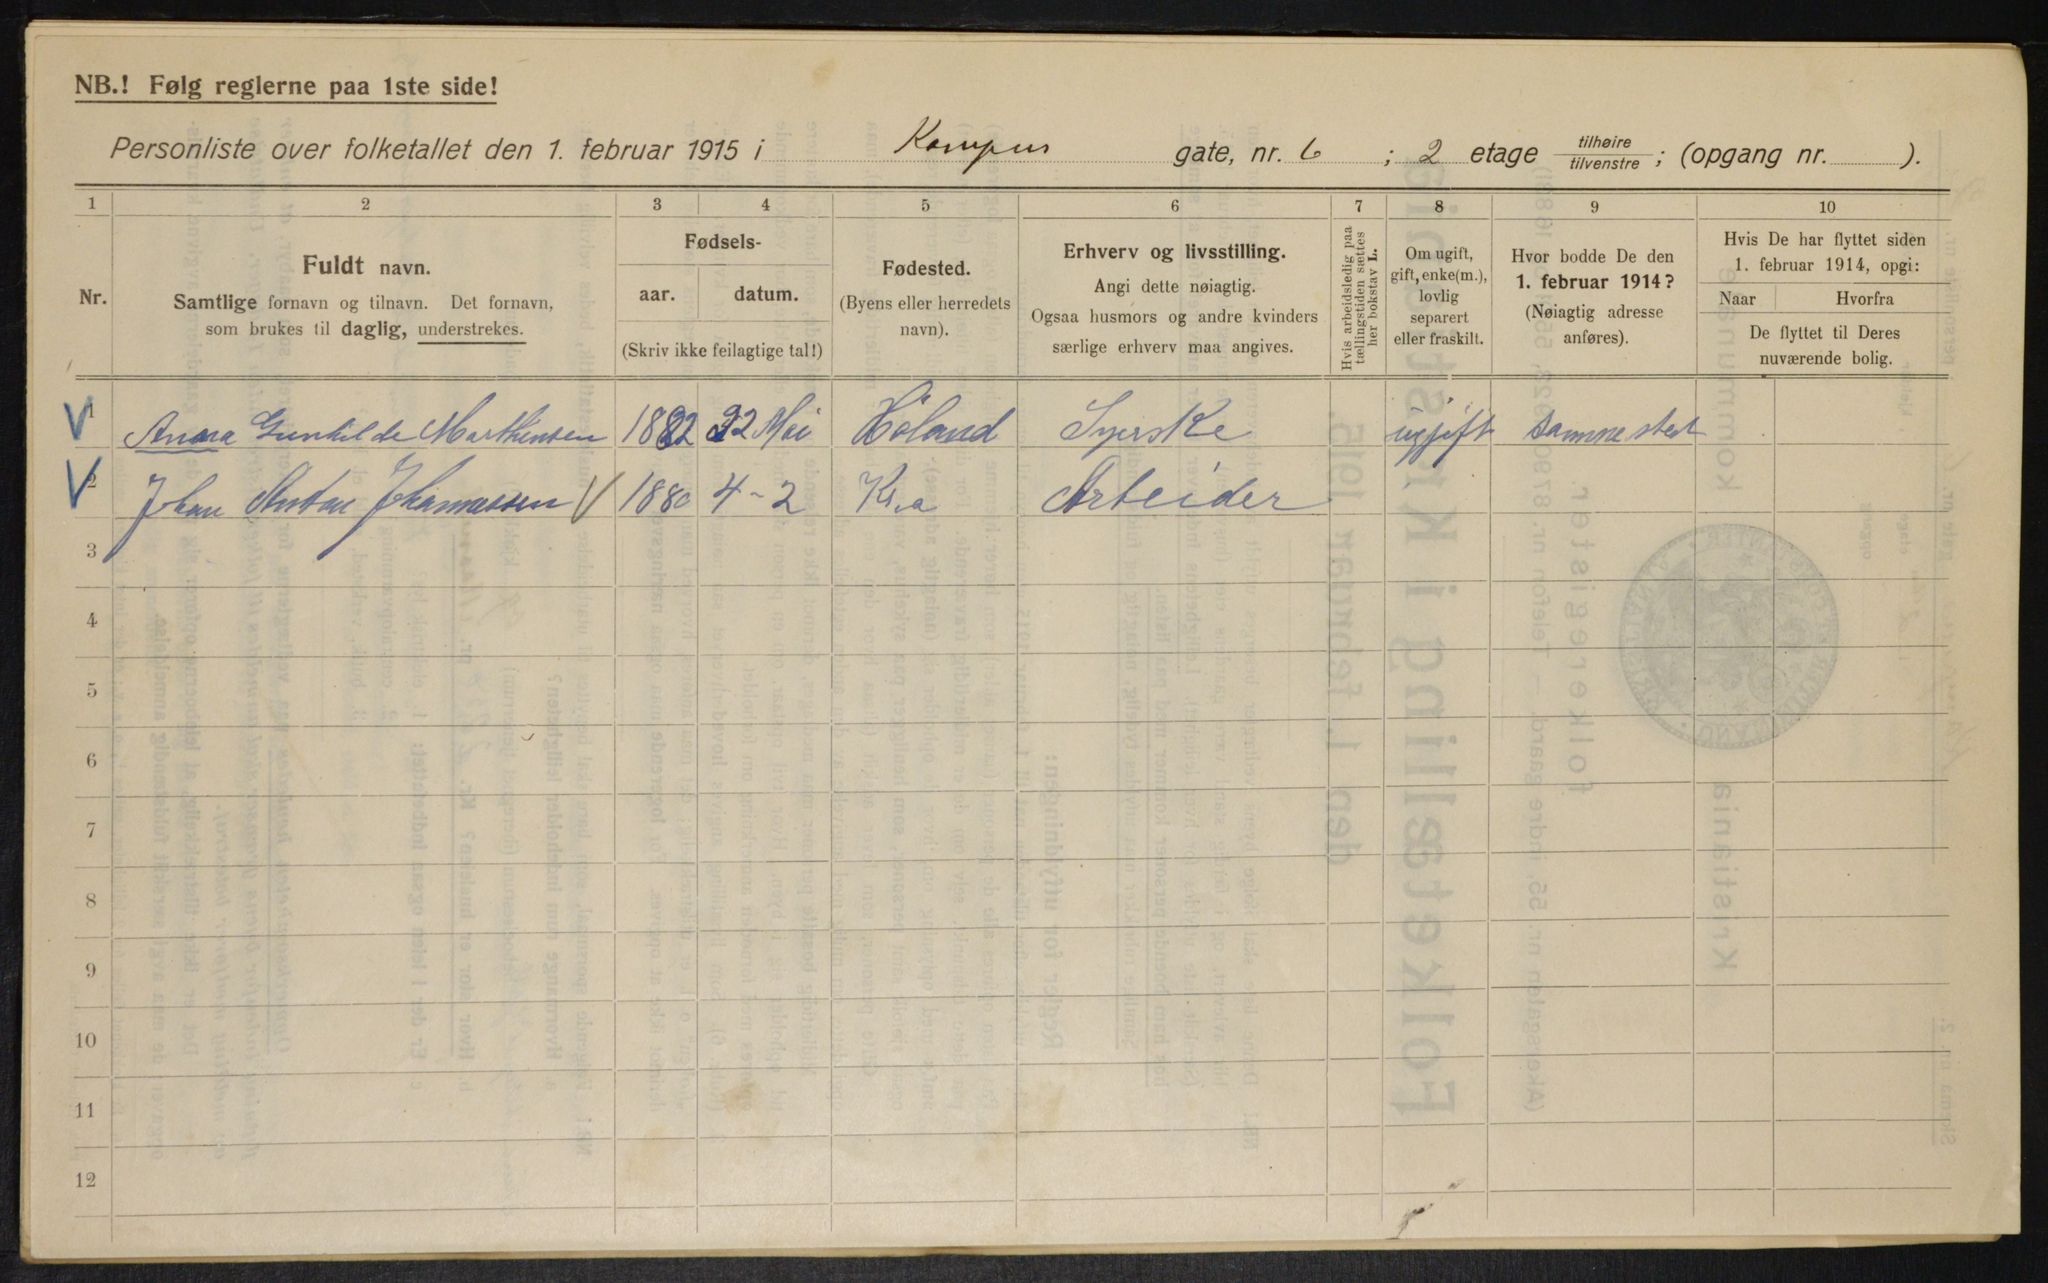 NB.! Følg reglerne paa 1ste side!
Personliste over folketallet den 1. februar 1915 i Kampens gate, nr. 6; 2 etage tilhøire / tilvenstre; (opgang nr. ).
1 2 3 4 5 6 7 8 9 10
Nr.
Fuldt navn.
Samtlige fornavn og tilnavn. Det fornavn,
som brukes til daglig, understrekes.
Fødsels-
aar. datum.
(Skriv ikke feilagtige tal!)
Fødested.
(Byens eller herredets
navn).
Erhverv og livsstilling.
Angi dette nøiagtig.
Ogsaa husmors og andre kvinders
særlige erhverv maa angives.
Hvis arbeidsledig paa
tællingstiden sættes
her bokstav L.
Om ugift,
gift, enke(m.),
lovlig
separert
eller fraskilt.
Hvor bodde De den
1. februar 1914?
(Nøiagtig adresse
anføres).
Hvis De har flyttet siden
1. februar 1914, opgi:
Naar Hvorfra
De flyttet til Deres
nuværende bolig.
1 Anna Gunhilde Marthinsen 1882 22 Mai Höland Syerske ugift sammested
2 Johan Anton Johannessen 1880 4-2 Kr.a Arbeider
3
4
5
6
7
8
9
10
11
12